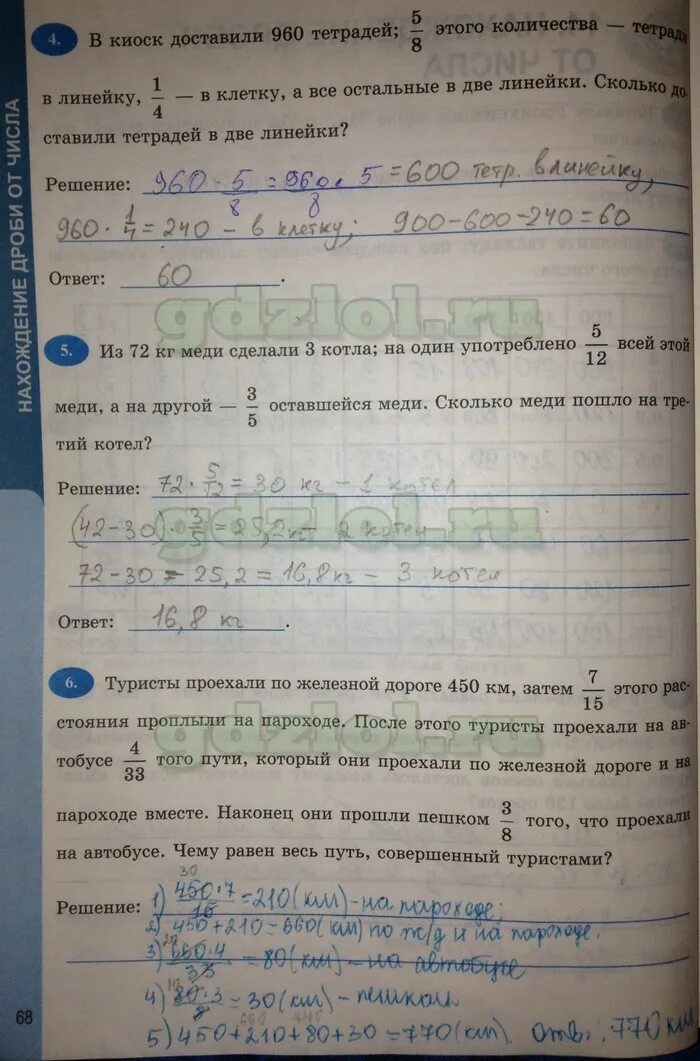 4. В киоск доставили 960 тетрадей; 5/8 этого количества — тетради
в линейку, 1/4 — в клетку, а все остальные в две линейки. Сколько до-
ставили тетрадей в две линейки?
Решение: 960 · 5/8 = 960 · 5/8 = 600 тетр. в линейку,
960 · 1/4 = 240 – в клетку; 900–600–240=60
Ответ: 60.
gdzlol.ru
5. Из 72 кг меди сделали 3 котла; на один употреблено 5/12 всей этой
меди, а на другой — 3/5 оставшейся меди. Сколько меди пошло на тре-
тий котел?
Решение: 72 · 5/12 = 30 кг – 1 котел
gdzlol.ru
(42–30) · 3/5 = 25,2 кг – 2 котел
72–30 – 25,2 = 16,8 кг – 3 котел
Ответ: 16,8 кг.
6. Туристы проехали по железной дороге 450 км, затем 7/15 этого рас-
стояния проплыли на пароходе. После этого туристы проехали на ав-
gdzlol.ru
тобусе 4/33 того пути, который они проехали по железной дороге и на
пароходе вместе. Наконец они прошли пешком 3/8 того, что проехали
на автобусе. Чему равен весь путь, совершенный туристами?
30
Решение: 1) 450·7/15 = 210 (км) – на пароходе;
2) 450+210=660 (км) по ж/д и на пароходе.
3) 660·4/33 = 80 (км) – на автобусе
4) 80·3/8 = 30 (км) – пешком
5) 450+210+80+30=770 (км). Отв: 770 км
68
НАХОЖДЕНИЕ ДРОБИ ОТ ЧИСЛА